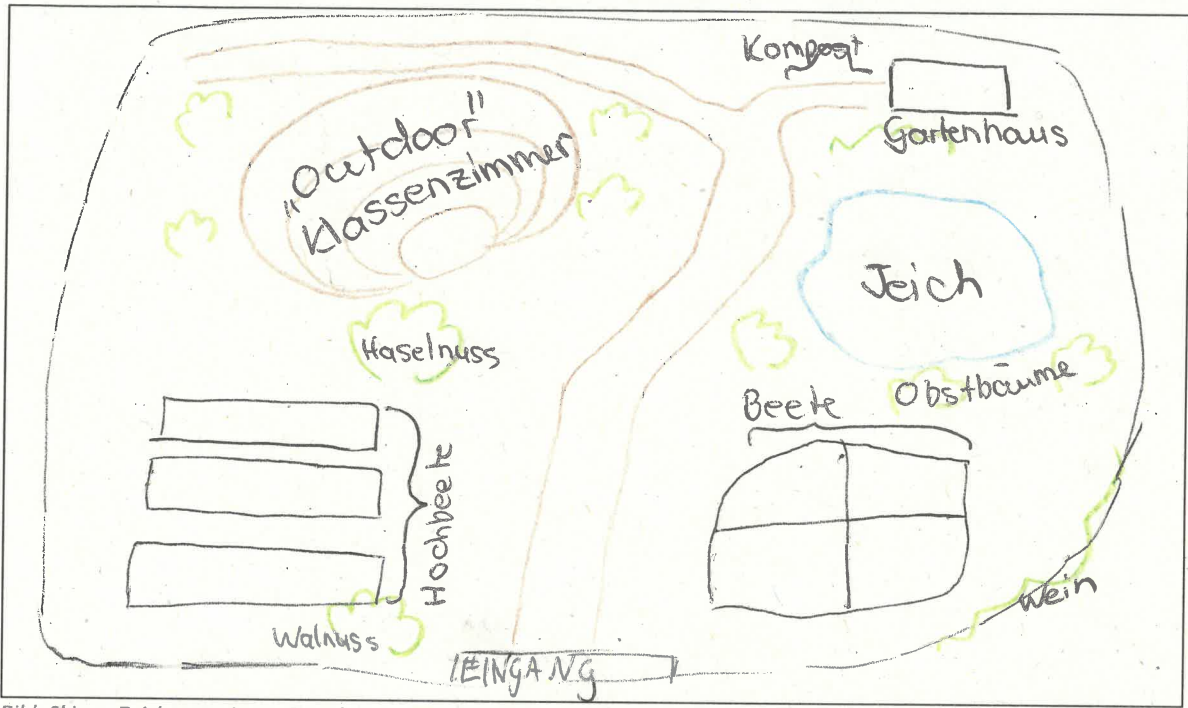 Kompost
Gartenhaus
„Outdoor"
Klassenzimmer
Teich
Haselnuss
Obstbäume
Beete
Hochbeete
Wein
Walnuss
EINGANG